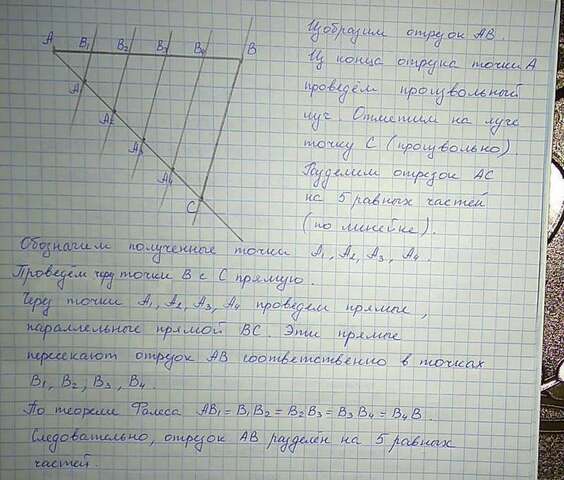 A B₁ B₂ B₃ B₄ B
A₁
A₂
A₃
A₄
C
Изобразим отрезок AB.
Из конца отрезка точки A
проведём произвольный
луч. Отметим на луче
точку C (произвольно).
Разделим отрезок AC
на 5 равных частей
(по линейке).
Обозначим полученные точки A₁, A₂, A₃, A₄.
Проведём через точки B с C прямую.
Через точки A₁, A₂, A₃, A₄ проведём прямые,
параллельные прямой BC. Эти прямые
пересекают отрезок AB соответственно в точках
B₁, B₂, B₃, B₄.
По теореме Фалеса AB₁ = B₁B₂ = B₂B₃ = B₃B₄ = B₄B.
Следовательно, отрезок AB разделён на 5 равных
частей.